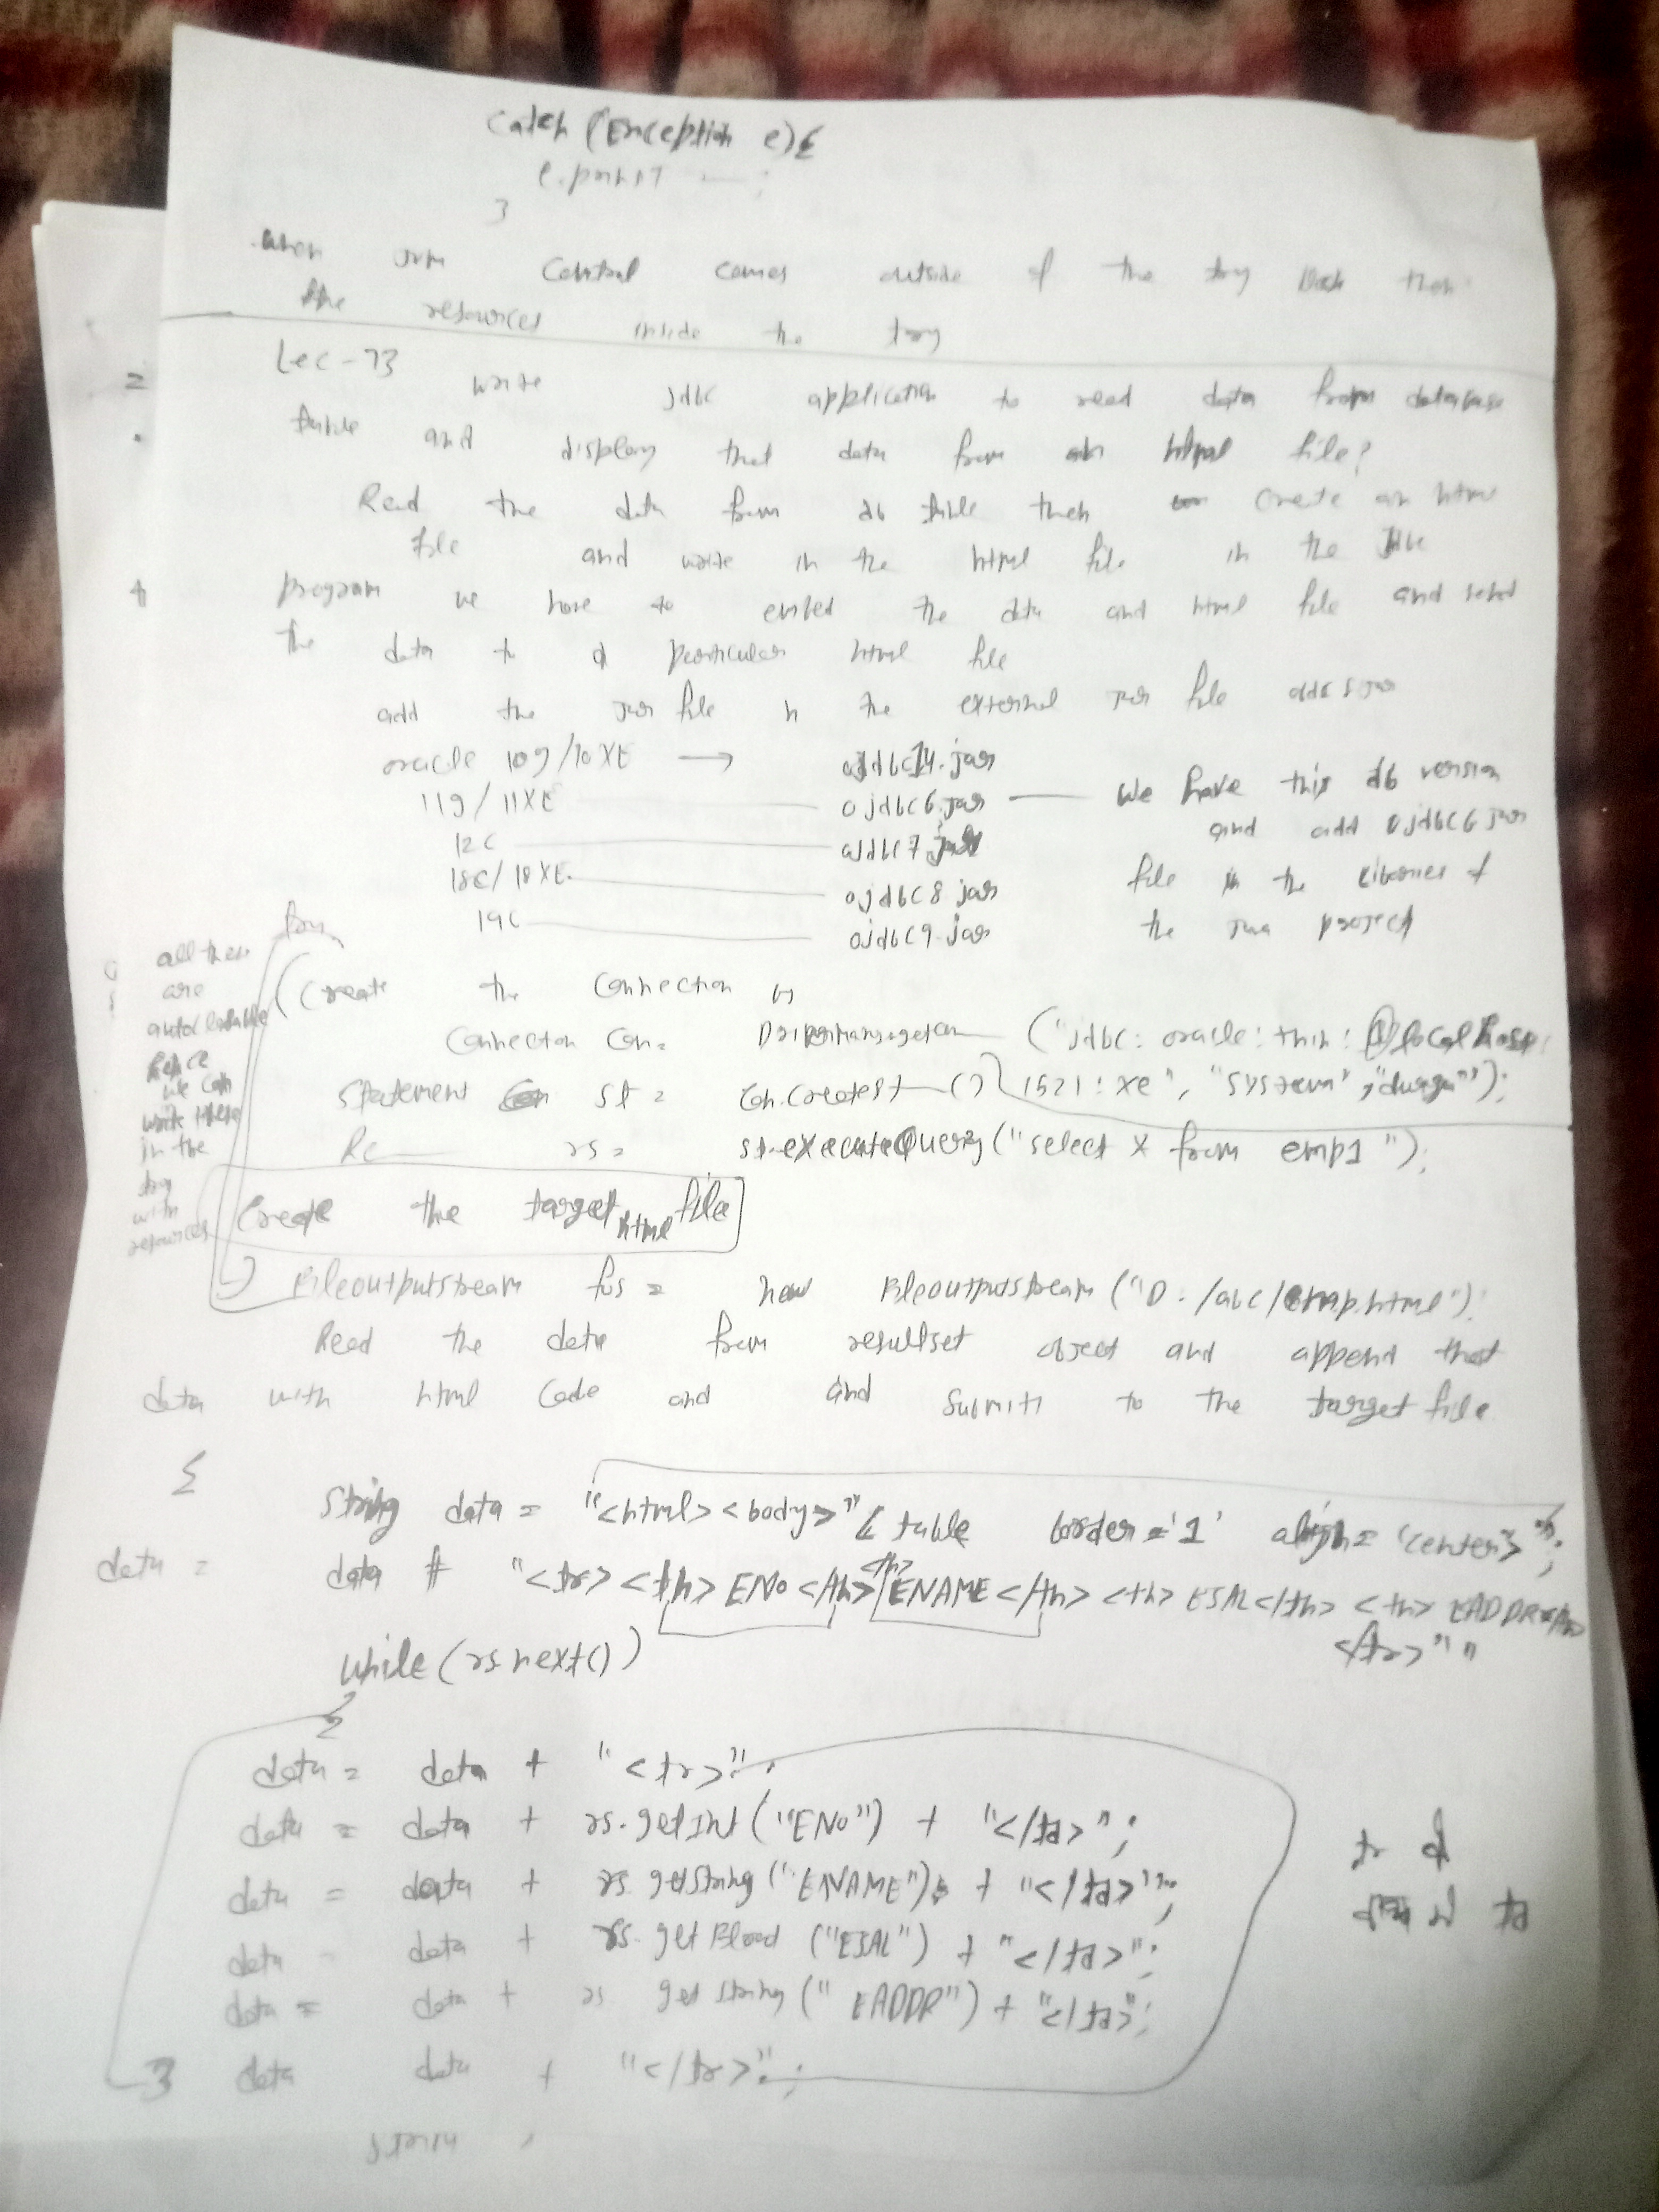 catch (Exception e){
e.print ;
}
when jvm control comes outside of the try block then
the resources inside the try
Lec-73
write jdbc application to read data from database
table and display that data from an html file?
Read the data from db table then create an html
file and write in the html file in the Jdbc
program we have to embed the data and html file and send
the data to a particular html file
add the jar file in the external jar file
oracle 10g/10XE → ojdbc14.jar
11g/11XE ojdbc6.jar — We have this db version
and add ojdbc6 jar
12C ojdbc7.jar
18C/18XE. ojdbc8 jar file in the libraries of
19C ojdbc9.jar the java project
try
all these
are
autoclosable
hence
we can
write these
in the
try
with
resources
(Create the Connection
Connection con = ("jdbc: oracle: thin: @localhost:
Statement st = con.createst () 1521: xe", "system", "durga");
Rs rs = st.executeQuery("select * from emp1");
Create the target html file
Fileoutputstream fos = new Fileoutputstream ("D:/abc/emp.html");
Read the data from resultset object and append that
data with html code and and submit to the target file
{
String data = "<html><body>"< table border='1' align='center'>";
data = data # "<tr><th> ENO </th><th>ENAME</th> <th> ESAL</th> <th> EADDR</th>
</tr>""
while (rs.next())
{
data = data + "<tr>";
data = data + rs.getInt("ENO") + "</td>";
data = data + rs.getString("ENAME") + "</td>";
data = data + rs. get ("ESAL") + "</td>";
data = data + rs getString("EADDR") + "</td>";
} data data + "</tr>";
tr d
td